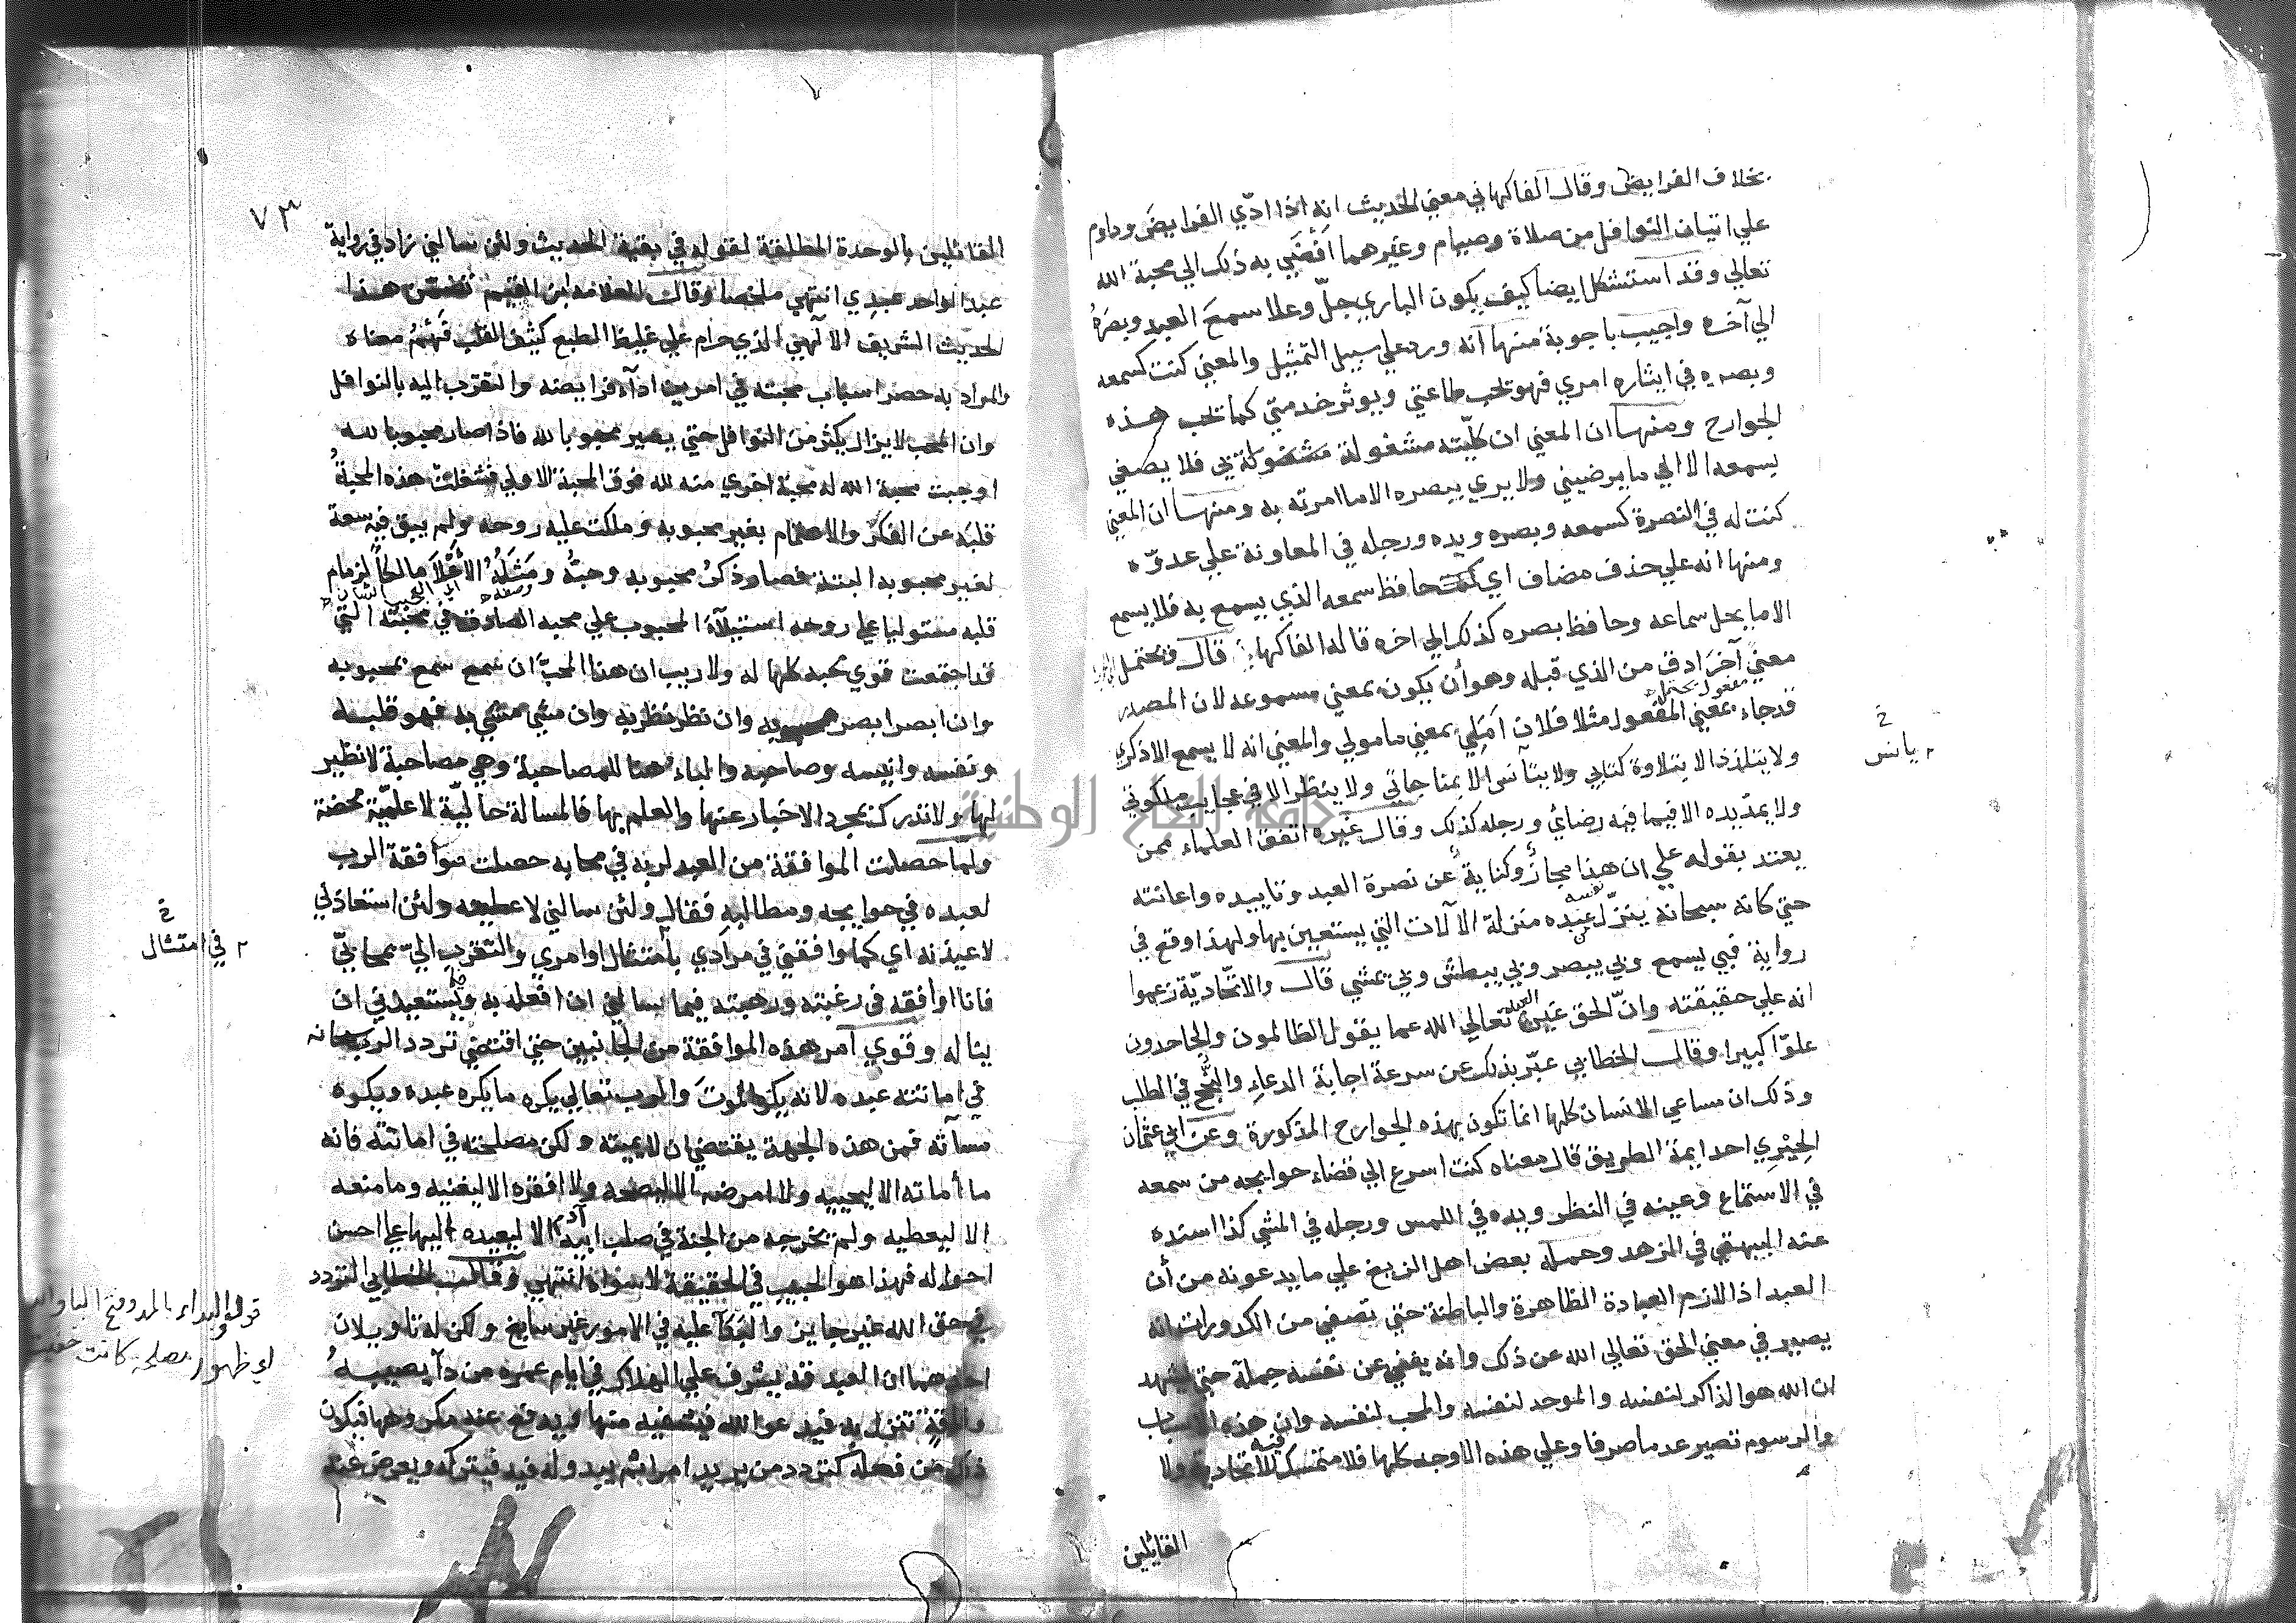 بخلاف الفرايض وقال الفاكهاني معني الحديث انه اذا ادّي الفرايض وداوم
علي اتيان النوافل من صلاة وصيام وغيرهما اَفْضَي به ذلك الي محبة الله
تعالي وقد استشكل ايضا كيف يكون الباري جلّ وعلا سمعَ العبد وبصرَهُ
الي آخره واجيب باجوبة منها انه ورد علي سبيل التمثيل والمعني كنت كسمعه
وبصره في ايثاره امري فهو تحب طاعتي ويوثر خدمتي كما تحب هذه
الجوارح ومنها ان المعني ان كلّيته مشغولة بي فلا يصغي
بسمعه الا الي ما يرضيني ولا يري ببصره الا ما امرته به ومنها ان المعني
كنت له في النصرة كسمعه وبصره ويده ورجله في المعاونة علي عدوّه
ومنها انه علي حذف مضاف اي كنت حافظ سمعه الذي يسمع به فلا يسمع
الا ما يحل سماعه وحافظ بصره كذلك الي اخره قاله الفاكهاني قال ويحتمل
معنًي آخر ادق من الذي قبله وهو أن يكون بمعني مسموعه لان المصدر
مفعول يحتمل
قد جاء بمعني المفعول مثلا فلان اَمَلِي بمعني مامولي والمعني انه لا يسمع الا ذكري
ولا يتلذذ الا بتلاوة كتابي ولا يتآنس الا بمناجاتي ولا ينظر الا في عجايب ملكوتي
يانس
ولا يمدّ يده الا فيما فيه رضائي ورجله كذلك وقال غيره اتفق العلماء ممن
يعتد بقوله علي ان هذا مجازٌ وكنايةٌ عن نصرة العبد وتاييده واعانته
حتي كانه سبحانه ينزّل نفسه من عبده منزلة الآلات التي يستعين بها ولهذا وقع في
رواية فبي يسمع وبي يبصر وبي يبطش وبي يمشي قال والاتحّاديّة زعموا
انه علي حقيقته وانّ الحق عَين العبد تعالي الله عما يقول الظالمون والجاحدون
علوّا كبيرا وقال الخطابي عبّر بذلك عن سرعة اجابة الدعاءِ والنجح في الطلب
وذلك ان مساعي الانسان كلها انما تكون بهذه الجوارح المذكورة وعن ابي عثمان
الحِيْرِي احد ايمة الطريق قال معناه كنت اسرع الي قضاء حوايجه من سمعه
في الاستماع وعينه في النظر ويده في اللمس ورجله في المشي كذا اسنده
عنه البيهقي في الزهد وحمله بعض اهل الزيغ علي ما يدعونه من أن
العبد اذا لازم العبادة الظاهرة والباطنة حتي تصفي من الكدورات انه
يصير في معني الحق تعالي الله عن ذلك وانه يفني عن نفسه جملة حتي يشهد
ان الله هو الذاكر لنفسه والموحد لنفسه والمحب لنفسه وان هذه الاسباب
والرسوم تصير عدما صرفا وعلي هذه الاوجه كلها فلا متمسك فيه للاتحادية ولا
القايلين
٧٣
القائلين بالوحدة المطلقة لقوله في بقية الحديث ولئن سالني زاد في رواية
عبد الواحد عبدِي انتهي ملخصا وقال العلامة ابن القيم تضمّن هذا
الحديث الشريف الالهي الذي حرام علي غليظ الطبع كثيف القلب فَهْمُ معناه
والمراد به حصر اسباب محبته في امرين اداء فرايضه والتقرب اليه بالنوافل
وان المحب لا يزال يكثر من النوافل حتي يصير محبوبا لله فاذا صار محبوبا لله
اوجبت محبة الله له محبة اخري منه لله فوق المحبة الاولي فشغلت هذه المحبةُ
قلبَه عن الفكر والاهتمام بغير محبوبه وملكت عليه روحه ولم يبق فيه سعة
لغير محبوبه البتة فصار ذكرُ محبوبه وحبُّه ومَثَلُهُ الأعْلاَ مالكاً لزمام
قلبه مستوليا علي روحه استيلآءَ المحبوب علي محبه الصادق في محبته التي
قد اجتمعت قوي محبه كلها له ولا ريب ان هذا المحبّ ان سمع سمع بمحبوبه
وان ابصر ابصر بمحبوبه وان نظر نظر به وان مشي مشي به فهو قلبه
ونفسه وانيسه وصاحبه والباء هنا للمصاحبة وهي مصاحبة لا نظير
لها ولا تدرك بمجرد الاخبار عنها والعلم بها فالمسالة حاليّة لا علميّة محضة
ولما حصلت الموافقة من العبد لربه في محابه حصلت موافقة الرب
لعبده في حوايجه ومطالبه فقال ولئن سالني لاعطينه ولئن استعاذني
لاعيذنه اي كما وافقني في مرادي بامتثال اوامري والتقرب اليّ بمحابّيّ
في امتثال
فانا اوافقه في رغبته ورهبته فيما سالني ان افعله به ويستعيذني ان
يناله وقوي امر هذه الموافقة من الجانبين حتي اقتضي تردد الرب سبحانه
في اماتته عبده لانه يكره الموت والرب تعالي يكره ما يكره عبده ويكره
مسآئته فمن هذه الجهة يقتضي ان لا يميته ولكن مصلحته في اماتته فانه
ما أماته الا ليحييه ولا امرضه الا ليصحه ولا افقره الا ليغنيه وما منعه
الا ليعطيه ولم يخرجه من الجنة في صلب ابيه آدم الا ليعيده اليها علي احسن
احواله فهذا هو الحبيب في الحقيقة لا سواه انتهي وقال الخطابي التردد
في حق الله غير جايز والبَدَآ عليه في الامور غير سايغ ولكن له تاويلان
قوله والبداء بالمد وفتح الباء
اي ظهور مصلحة كانت خفيت
احدهما ان العبد قد يشرف علي الهلاك في ايام عمره من دآ يصيبهُ
وفاقةٍ تنزل به فيدعو الله فيشفيه منها ويدفع عنه مكروهها فيكون
ذلك من فعله كتردد من يريد امرا ثم يبدو له فيه فيتركه ويعرض عنه
جامعة النجاح الوطنية